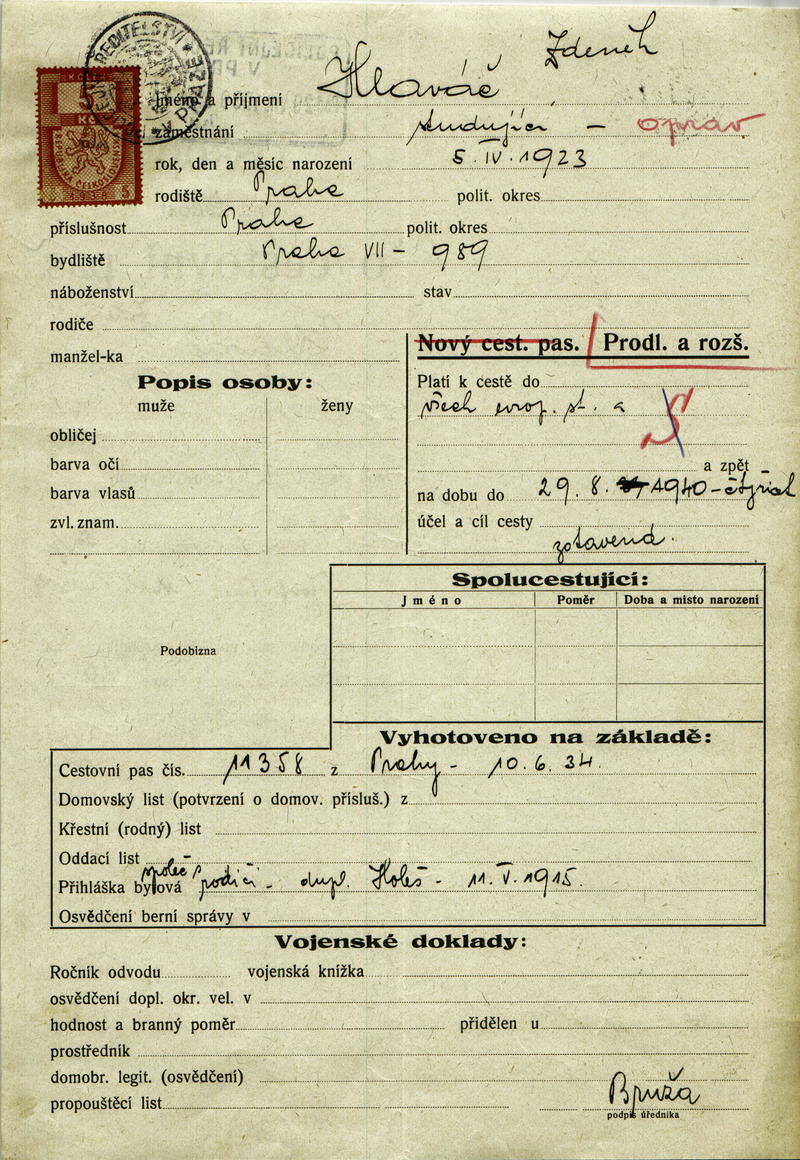 ŘEDITELSTVÍ
V PRAZE
KOLEK
5
Kč
REPUBLIKA ČESKOSLOVENSKÁ
1938 5
Zdeněk
Jméno a příjmení Hlaváč
zaměstnání studující – oprav
rok, den a měsíc narození 5. IV. 1923
rodiště Praha polit. okres
příslušnost Praha polit. okres
bydliště Praha VII – 989
náboženství stav
rodiče
manžel-ka
Nový cest. pas. Prodl. a rozš.
Popis osoby:
muže ženy
obličej
barva očí
barva vlasů
zvl. znam.
Platí k cestě do
všech evrop. st. a
a zpět –
na dobu do 29. 8. 1940 –
účel a cíl cesty
zotavená.
Podobizna
Spolucestující:
Jméno Poměr Doba a místo narození
Vyhotoveno na základě:
Cestovní pas čís. 11358 z Prahy – 10. 6. 34.
Domovský list (potvrzení o domov. přísluš.) z
Křestní (rodný) list
Oddací list –
Přihláška bytová rodiči – dupl. Holeš – 11. V. 1915.
Osvědčení berní správy v
Vojenské doklady:
Ročník odvodu vojenská knížka
osvědčení dopl. okr. vel. v
hodnost a branný poměr přidělen u
prostředník
domobr. legit. (osvědčení)
propouštěcí list
Bruža
podpis úředníka